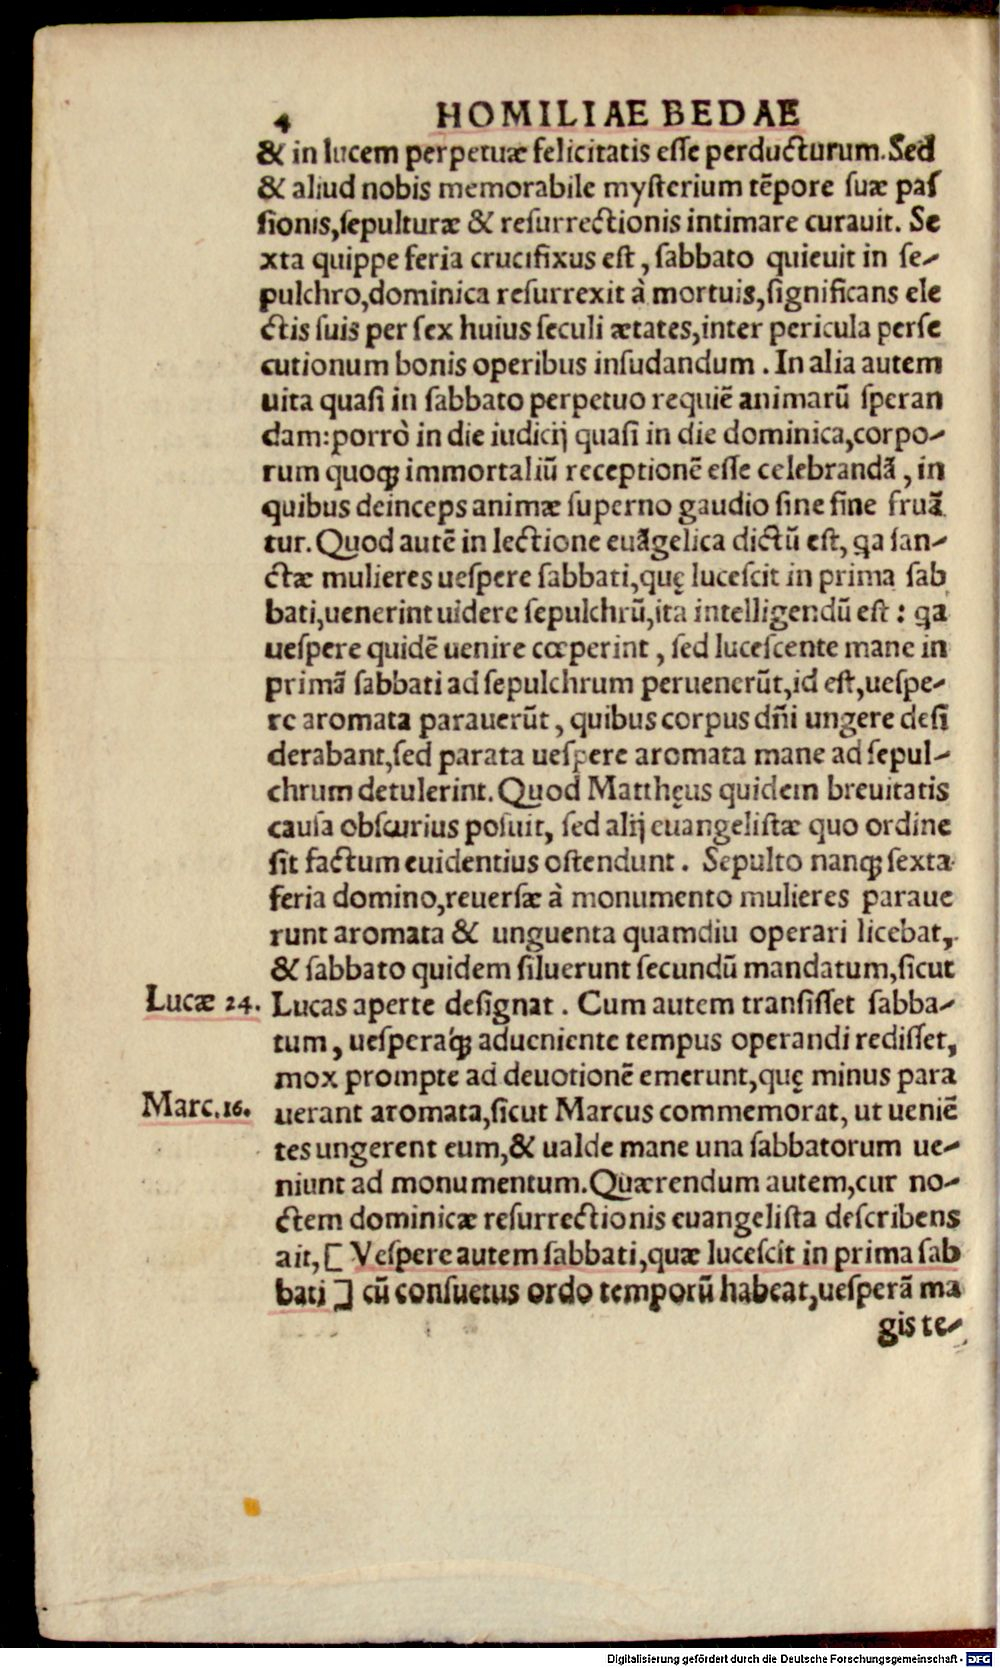 4 HOMILIAE BEDAE
& in lucem perpetuæ felicitatis esse perducturum. Sed
& aliud nobis memorabile mysterium tẽpore suæ pas
sionis, sepulturæ & resurrectionis intimare curauit. Se
xta quippe feria crucifixus est, sabbato quieuit in se-
pulchro, dominica resurrexit à mortuis, significans ele
ctis suis per sex huius seculi ætates, inter pericula perse
cutionum bonis operibus insudandum. In alia autem
uita quasi in sabbato perpetuo requiẽ animarũ speran
dam: porrò in die iudicij quasi in die dominica, corpo-
rum quoqꝫ immortaliũ receptionẽ esse celebrandã, in
quibus deinceps animæ superno gaudio sine fine fruã
tur. Quod autẽ in lectione euãgelica dictũ est, ꝗa san-
ctæ mulieres uespere sabbati, quę lucescit in prima sab
bati, uenerint uidere sepulchrũ, ita intelligendũ est: ꝗa
uespere quidẽ uenire cœperint, sed lucescente mane in
primã sabbati ad sepulchrum peruenerũt, id est, uespe-
re aromata parauerũt, quibus corpus dñi ungere desi
derabant, sed parata uespere aromata mane ad sepul-
chrum detulerint. Quod Matthęus quidem breuitatis
causa obscurius posuit, sed alij euangelistæ quo ordine
sit factum euidentius ostendunt. Sepulto nanqꝫ sexta
feria domino, reuersæ à monumento mulieres paraue
runt aromata & unguenta quamdiu operari licebat,
& sabbato quidem siluerunt secundũ mandatum, sicut
Lucæ 24. Lucas aperte designat. Cum autem transisset sabba-
tum, uesperáqꝫ adueniente tempus operandi redisset,
mox prompte ad deuotionẽ emerunt, quę minus para
Marc. 16. uerant aromata, sicut Marcus commemorat, ut ueniẽ
tes ungerent eum, & ualde mane una sabbatorum ue-
niunt ad monumentum. Quærendum autem, cur no-
ctem dominicæ resurrectionis euangelista describens
ait, [Vespere autem sabbati, quæ lucescit in prima sab
bati] cũ consuetus ordo temporũ habeat, uesperã ma
gis te-
Digitalisierung gefördert durch die Deutsche Forschungsgemeinschaft - DFG